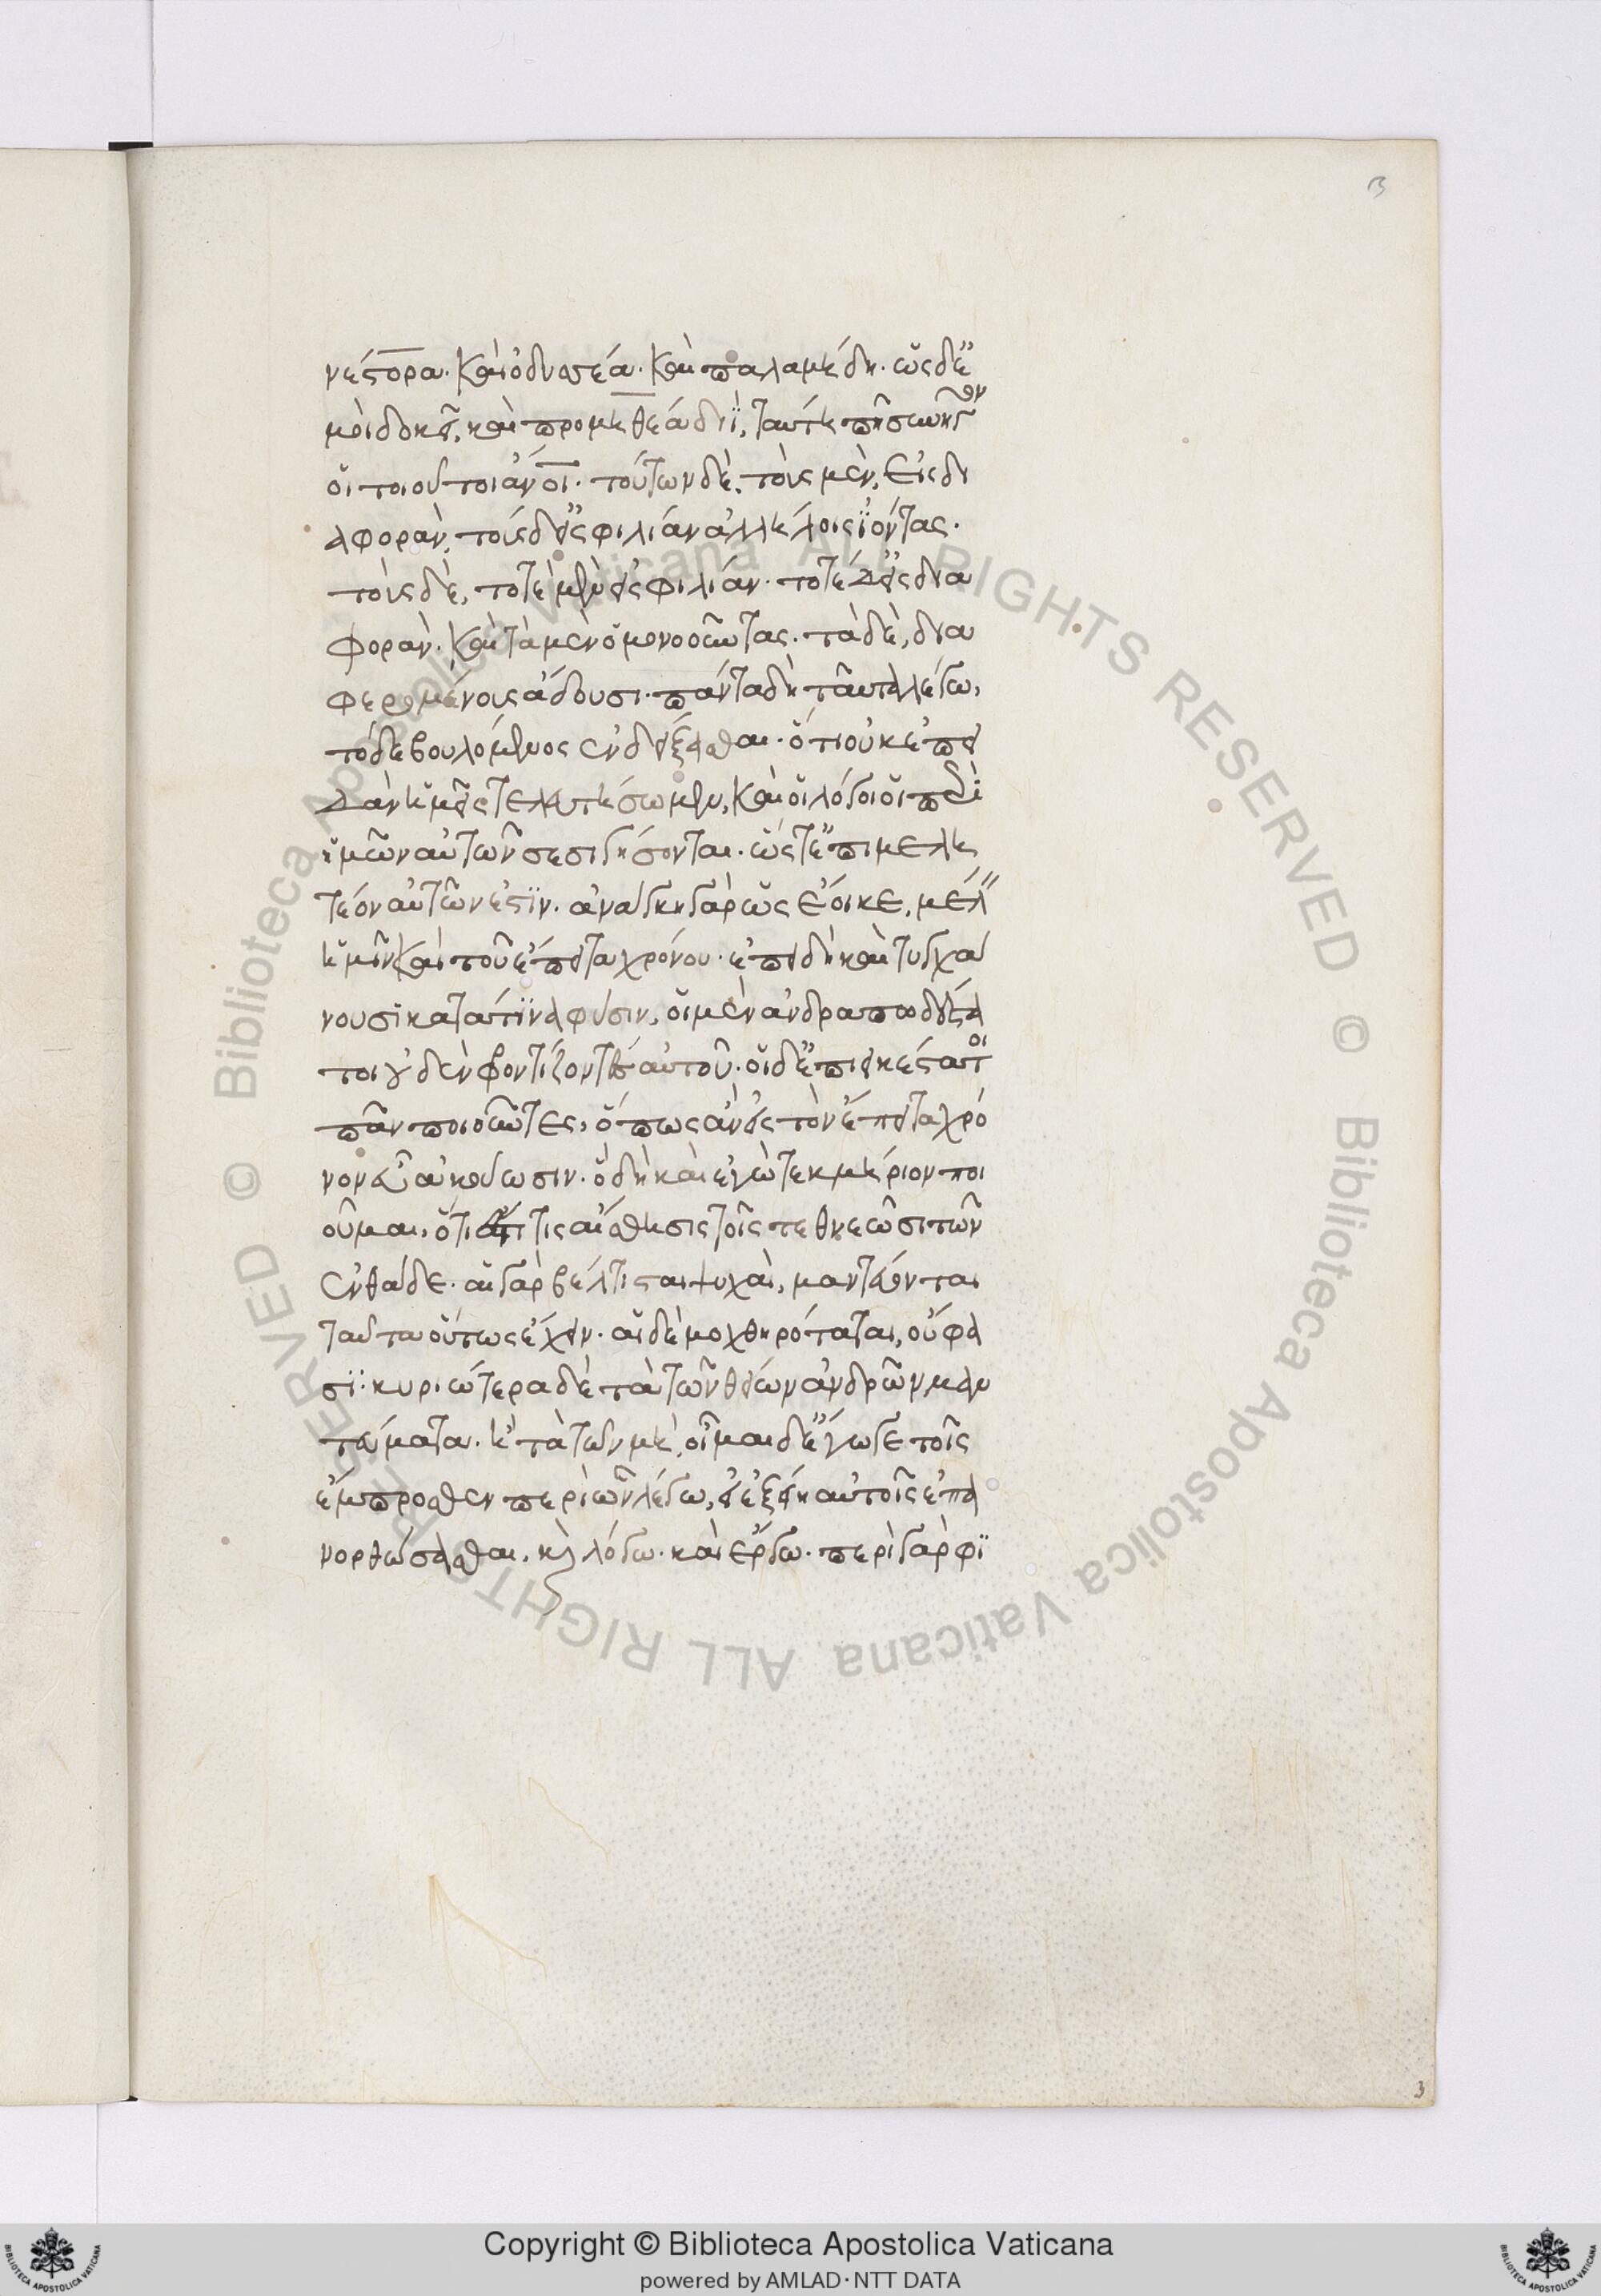 β
νέστορα· καὶ ὀδυσσέα· καὶ παλαμήδη· ὡς δέ
μοι δοκεῖ, καὶ προμηθέα διῒ, ταύτη πη συνῆγον
οἱ πρῶτοι ἄνοι· τούτων δὲ, τοὺς μὲν, εἰς δι
αφορὰν, τοὺς δ' εἰς φιλίαν ἀλλήλοις ἰόντας·
τοὺς δὲ, τοτὲ μὲν εἰς φιλίαν· τοτὲ δ' εἰς δια
φορὰν· καὶ τὰ μὲν ὁμονοοῦντας· τὰ δὲ, δια
φερομένους ἄδουσι· πάντα δὴ ταῦτα λέγω,
τόδε βουλόμενος ἐνδείξασθαι· ὅτι οὐκ ἐπει
δὰν ἡμεῖς τελευτήσωμεν, καὶ οἱ λόγοι οἱ περὶ
ἡμῶν αὐτῶν σεσιγήσονται· ὥστ' ἐπιμελη
τέον αὐτῶν ἐστὶν· ἀνάγκη γὰρ ὡς ἔοικε, μέλ
ἡμῖν καὶ τοῦ ἔπειτα χρόνου· ἐπειδὴ καὶ τυγχά
νουσι κατά τινα φύσιν, οἱ μὲν ἀνδραποδωδέστα
τοι οὐδὲν φροντίζοντες αὐτοῦ· οἱ δ' ἐπιεικέστατοι
πᾶν ποιοῦντες, ὅπως ἂν εἰς τὸν ἔπειτα χρό
νον εὖ ἀκούωσιν· ὃ δὴ καὶ ἐγὼ τεκμήριον ποι
οῦμαι, ὅτι ἔστι τις αἴσθησις τοῖς τεθνεῶσι τῶν
ἐνθάδε· αἱ γὰρ βέλτισται ψυχαὶ, μαντεύονται
ταῦτα οὕτως ἔχειν· αἱ δὲ μοχθηρόταται, οὔ φα
σι· κυριώτερα δὲ τὰ τῶν θείων ἀνδρῶν μαν
τεύματα· ἢ τὰ τῶν μὴ, οἶμαι δ' ἔγωγε τοῖς
ἔμπροσθεν περὶ ὧν λέγω, εἰ ἐξείη αὐτοῖς ἐπα
νορθώσασθαι, καὶ λόγω· καὶ ἔργω· περὶ γὰρ φι
3
Copyright © Biblioteca Apostolica Vaticana
powered by AMLAD·NTT DATA
© Biblioteca Apostolica Vaticana ALL RIGHTS RESERVED © Biblioteca Apostolica Vaticana ALL RIGHTS RESERVED